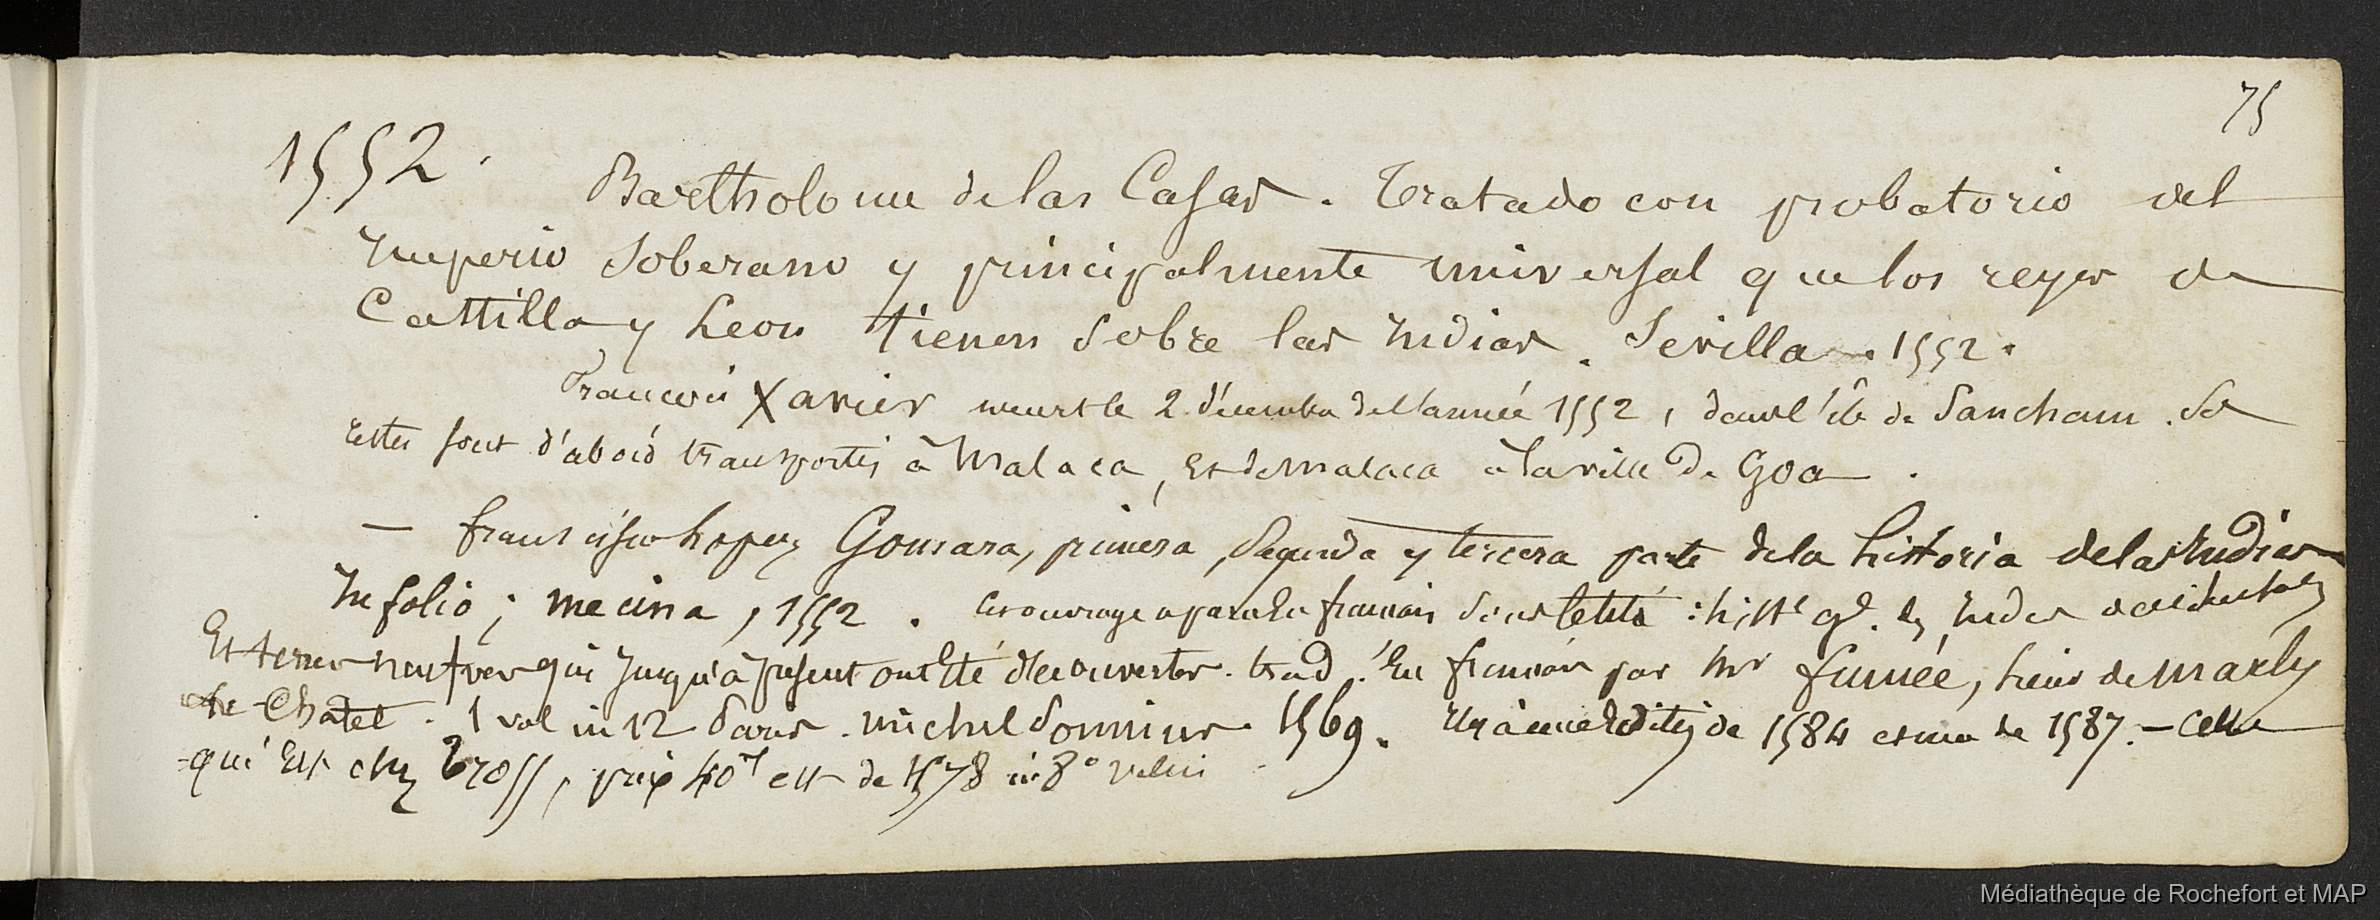 75
1552.
Barthelolome de las Casas. Tratado con probatorio del
Imperio Soberano y principalmente universal que los reyes de
Castilla y Leon tienen sobre las Indias. Sevilla. 1552.
Francois Xavier meurt le 2 décembre de l'année 1552, dans l'île de Sancham. Ses
restes sont d'abord transportés à Malaca, et de Malaca à la ville de Goa.
— francisco Lopez Gomara, primera, segunda y tercera parte de la historia de las Indias
In folio; mecina, 1552. Cet ouvrage a paru en francais sous le titre : histe gle. des Indes occidentales
Et terres neufves qui jusqu'à présent ont été découvertes. trad. En francais par Mr fumée, sieur de Marly
le Chatel. 1 vol in 12 Paris. michel Sonnius. 1569. de 1584 et une de 1587. — Celle
qui Est chez Tross, prix 40f est de 1578 in 8° velin
Médiathèque de Rochefort et MAP